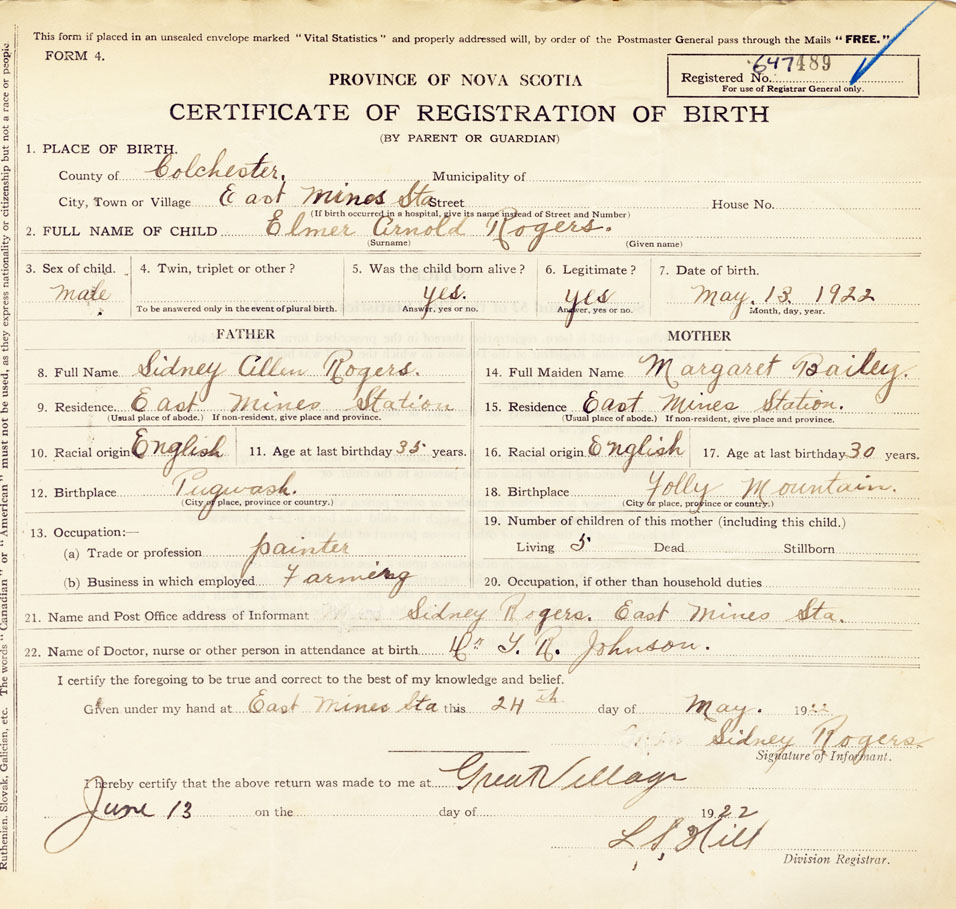 This form if placed in an unsealed envelope marked "Vital Statistics" and properly addressed will, by order of the Postmaster General pass through the Mails "FREE."
FORM 4.
Registered No. 647 489
For use of Registrar General only.
PROVINCE OF NOVA SCOTIA
CERTIFICATE OF REGISTRATION OF BIRTH
(BY PARENT OR GUARDIAN)
1. PLACE OF BIRTH.
County of Colchester, Municipality of
City, Town or Village East Mines Sta Street House No.
(If birth occurred in a hospital, give its name instead of Street and Number)
2. FULL NAME OF CHILD Elmer Arnold Rogers.
(Surname) (Given name)
3. Sex of child. 4. Twin, triplet or other? 5. Was the child born alive? 6. Legitimate? 7. Date of birth.
male yes. yes May. 13. 1922
To be answered only in the event of plural birth. Answer, yes or no. Answer, yes or no. Month, day, year.
FATHER MOTHER
8. Full Name Sidney Allen Rogers. 14. Full Maiden Name Margaret Bailey.
9. Residence East Mines Station 15. Residence East Mines Station.
(Usual place of abode.) If non-resident, give place and province. (Usual place of abode.) If non-resident, give place and province.
10. Racial origin English 11. Age at last birthday 35 years. 16. Racial origin English 17. Age at last birthday 30 years.
12. Birthplace Pugwash. 18. Birthplace Folly Mountain.
(City or place, province or country.) (City or place, province or country.)
13. Occupation:— 19. Number of children of this mother (including this child.)
(a) Trade or profession painter Living 5 Dead Stillborn
(b) Business in which employed Farming 20. Occupation, if other than household duties
21. Name and Post Office address of Informant Sidney Rogers. East Mines Sta.
22. Name of Doctor, nurse or other person in attendance at birth Dr T. R. Johnson.
I certify the foregoing to be true and correct to the best of my knowledge and belief.
Given under my hand at East Mines Sta this 24th day of May. 1922
Sidney Rogers.
Signature of Informant.
I hereby certify that the above return was made to me at Great Village
June 13 on the day of 1922
L S Hill
Division Registrar.
Ruthenian, Slovak, Galician, etc. The words "Canadian" or "American" must not be used, as they express nationality or citizenship but not a race or people